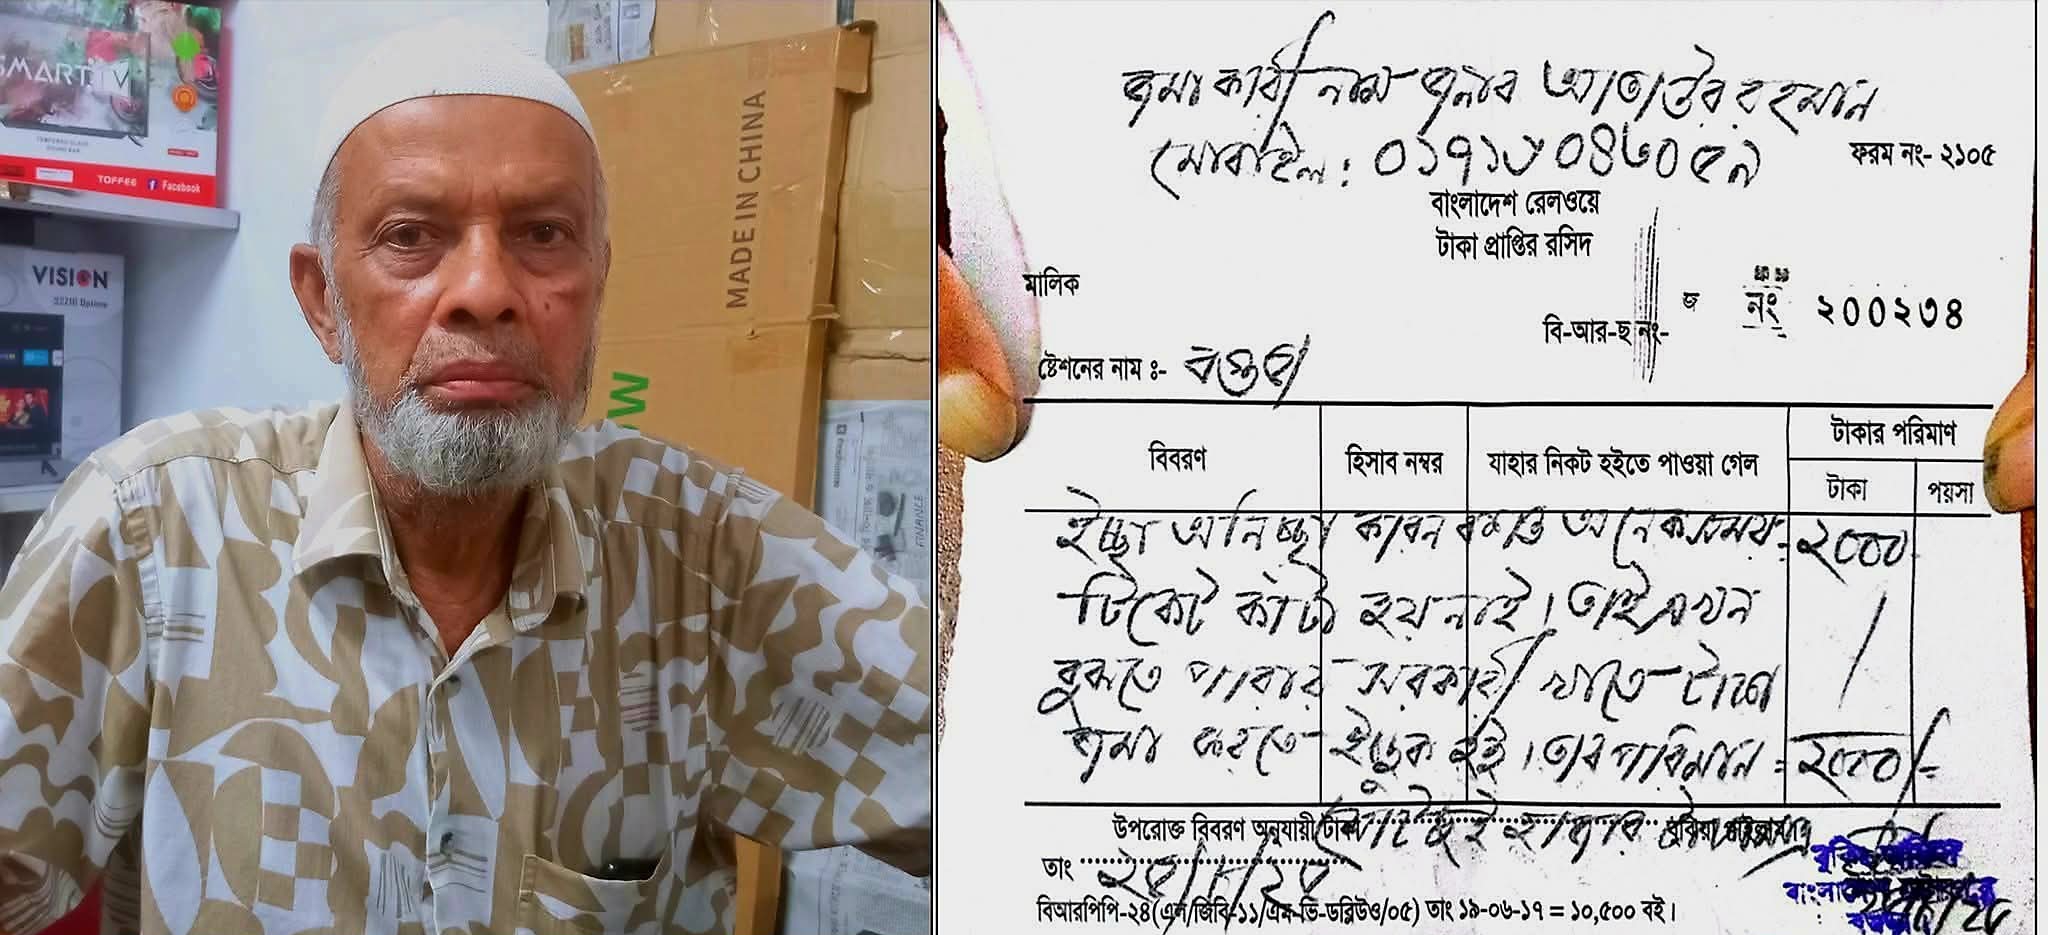 SMART TV
TOFFEE
Facebook
VISION
MADE IN CHINA
FINANCE
জমা কারী নাম জনাব আতাউর রহমান
ফরম নং- ২১০৫
বাংলাদেশ রেলওয়ে
টাকা প্রাপ্তির রসিদ
মালিক
বি-আর-ছ নং-
জ নং ২০০২৩৪
ষ্টেশনের নাম ঃ- বগুড়া
বিবরণ
হিসাব নম্বর
যাহার নিকট হইতে পাওয়া গেল
টাকার পরিমাণ
টাকা
পয়সা
ইচ্ছা অনিচ্ছা কারন বশত অনেক সময় = ২০০০
টিকেট কাটা হয় নাই। তাই এখন
বুঝতে পারায় সরকারী খাতে টাকা
জমা করতে ইচ্ছুক হই। তার পরিমান = ২০০০/-
উপরোক্ত বিবরণ অনুযায়ী টাকা মোট দুই হাজার টাকা বুঝিয়া পাইলাম
তাং
বিআরপিপি-২৪(এল/জিবি-১১/এম-ভি-ডব্লিউও/০৫) তাং ১৯-০৬-১৭ = ১০,৫০০ বই।